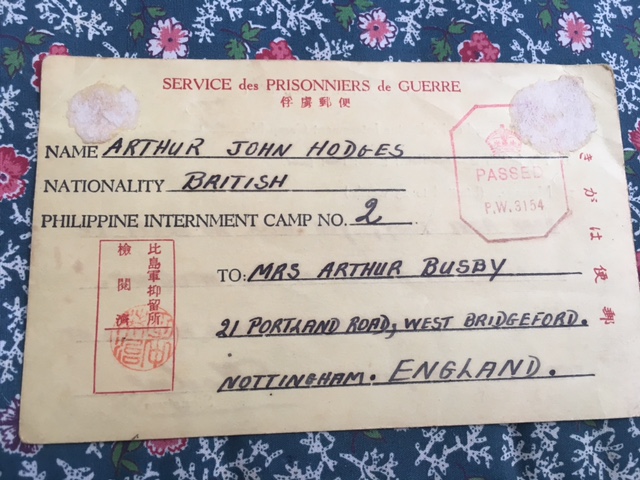 SERVICE des PRISONNIERS de GUERRE
俘虜郵便
NAME ARTHUR JOHN HODGES
NATIONALITY BRITISH
PHILIPPINE INTERNMENT CAMP NO. 2
PASSED
P.W. 3154
きがは便郵
比島軍抑留所
檢閲濟
TO: MRS ARTHUR BUSBY
21 PORTLAND ROAD, WEST BRIDGEFORD.
NOTTINGHAM. ENGLAND.